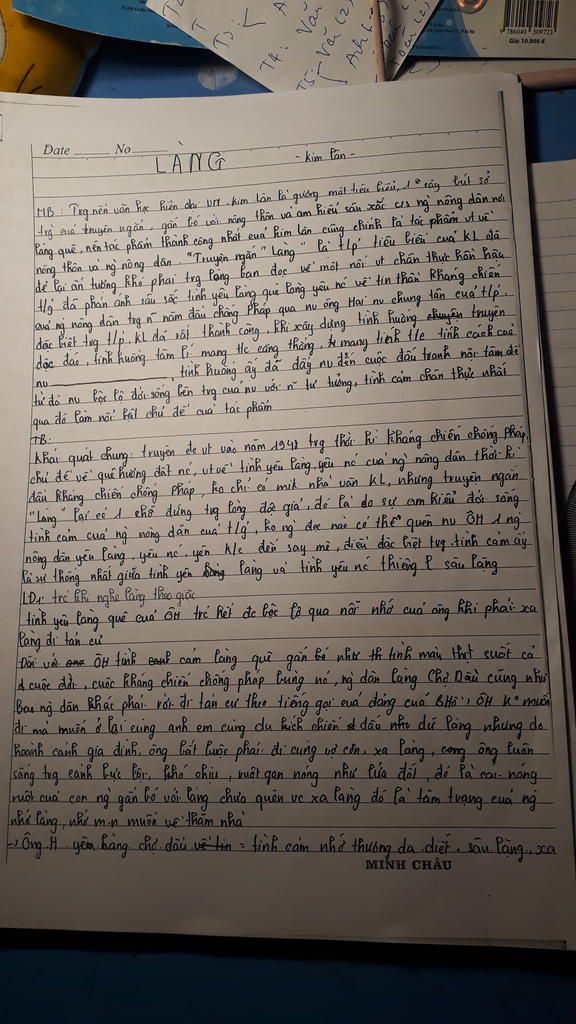 T4: Văn
T5: Văn (2)
9 786040 309723
Giá: 10.000 đ
Date No
LÀNG
- Kim Lân -
MB: Trg nền văn học hiện đại VN. Kim Lân là gương mặt tiêu biểu, 1 cây bút sở
trg của truyện ngắn, gắn bó với nông thôn và am hiểu sâu xắc c/s ng nông dân nơi
làng quê, nên tác phẩm thành công nhất của Kim Lân cũng chính là tác phẩm vt về
nông thôn và ng nông dân. "Truyện ngắn "Làng" là t/p tiêu biểu của KL đã
để lại ấn tượng khó phai trg lòng bạn đọc về một nối vt chân thực hồn hậu
t/g đã phản ánh sâu sắc tình yêu làng quê lòng yêu nc về tin thần kháng chiến
của ng nông dân trg n~ năm đầu chống Pháp qua nv ông Hai nv chung tân của t/p.
đặc biệt trg t/p. KL đã rất thành công, khi xây dựng tình huống truyện
độc đác, tình huống tâm lí mang t/c căng thẳng, mang tính t/c tính cách của
nv tình huống ấy đã đẩy nv đến cuộc đấu tranh nội tâm để
từ đó nv bộc lộ đời sống bên trg của nv với n~ tư tưởng, tình cảm chân thực nhất
qua đó làm nổi bật chủ đề của tác phẩm
TB:
Khái quát chung: truyện đc vt vào năm 1948 trg thời kì kháng chiến chống Pháp,
chủ đề về quê hương đất nc, vt về tình yêu làng, yêu nc của ng nông dân thời kì
đầu kháng chiến chống Pháp, ko chỉ có mik nhà văn KL, nhưng truyện ngắn
"Làng" lại có 1 chỗ đứng trg lòng độc giả, đó là do sự am hiểu đời sống
tình cảm của ng nông dân của t/g, ko ng đọc nào có thể quên nv ÔH 1 ng
nông dân yêu làng, yêu nc, yên k/c đến say mê, điều đặc biệt trg tình cảm ấy
là sự thống nhất giữa tình yên làng và tình yêu nc thiêng l sâu lặng
LĐ1: trc khi nghe làng theo giặc
tình yêu làng quê của ÔH trc hết đc bộc lộ qua nỗi nhớ của ông khi phải xa
làng đi tản cư
Đối với ÔH tình cảm làng quê gắn bó như th tình máu thịt suốt cả
cuộc đời, cuộc kháng chiến chống pháp bung nổ, ng dân làng Chợ Dầu cũng như
ng dân khác phải rời đi tản cư theo tiếng gọi của đảng của BHồ, ÔH ko muốn
đi mà muốn ở lại cùng anh em cùng du kích chiến đấu như dữ làng nhưng do
hoành cảnh gia đình, ông bắt buộc phải đi cùng vợ con, xa làng, ông luôn
sống trg cảnh bực bội, khó chịu, ruột gan nóng như lửa đốt, đó là cái nóng
ruột của con ng gắn bó với làng chưa quên vc xa làng đó là tâm trạng của ng
nhớ làng, nhớ m.n muốn về thăm nhà
-> Ông H yêm làng chợ dầu = tình cảm nhớ thương da diết, sâu lặng, xa
MINH CHÂU